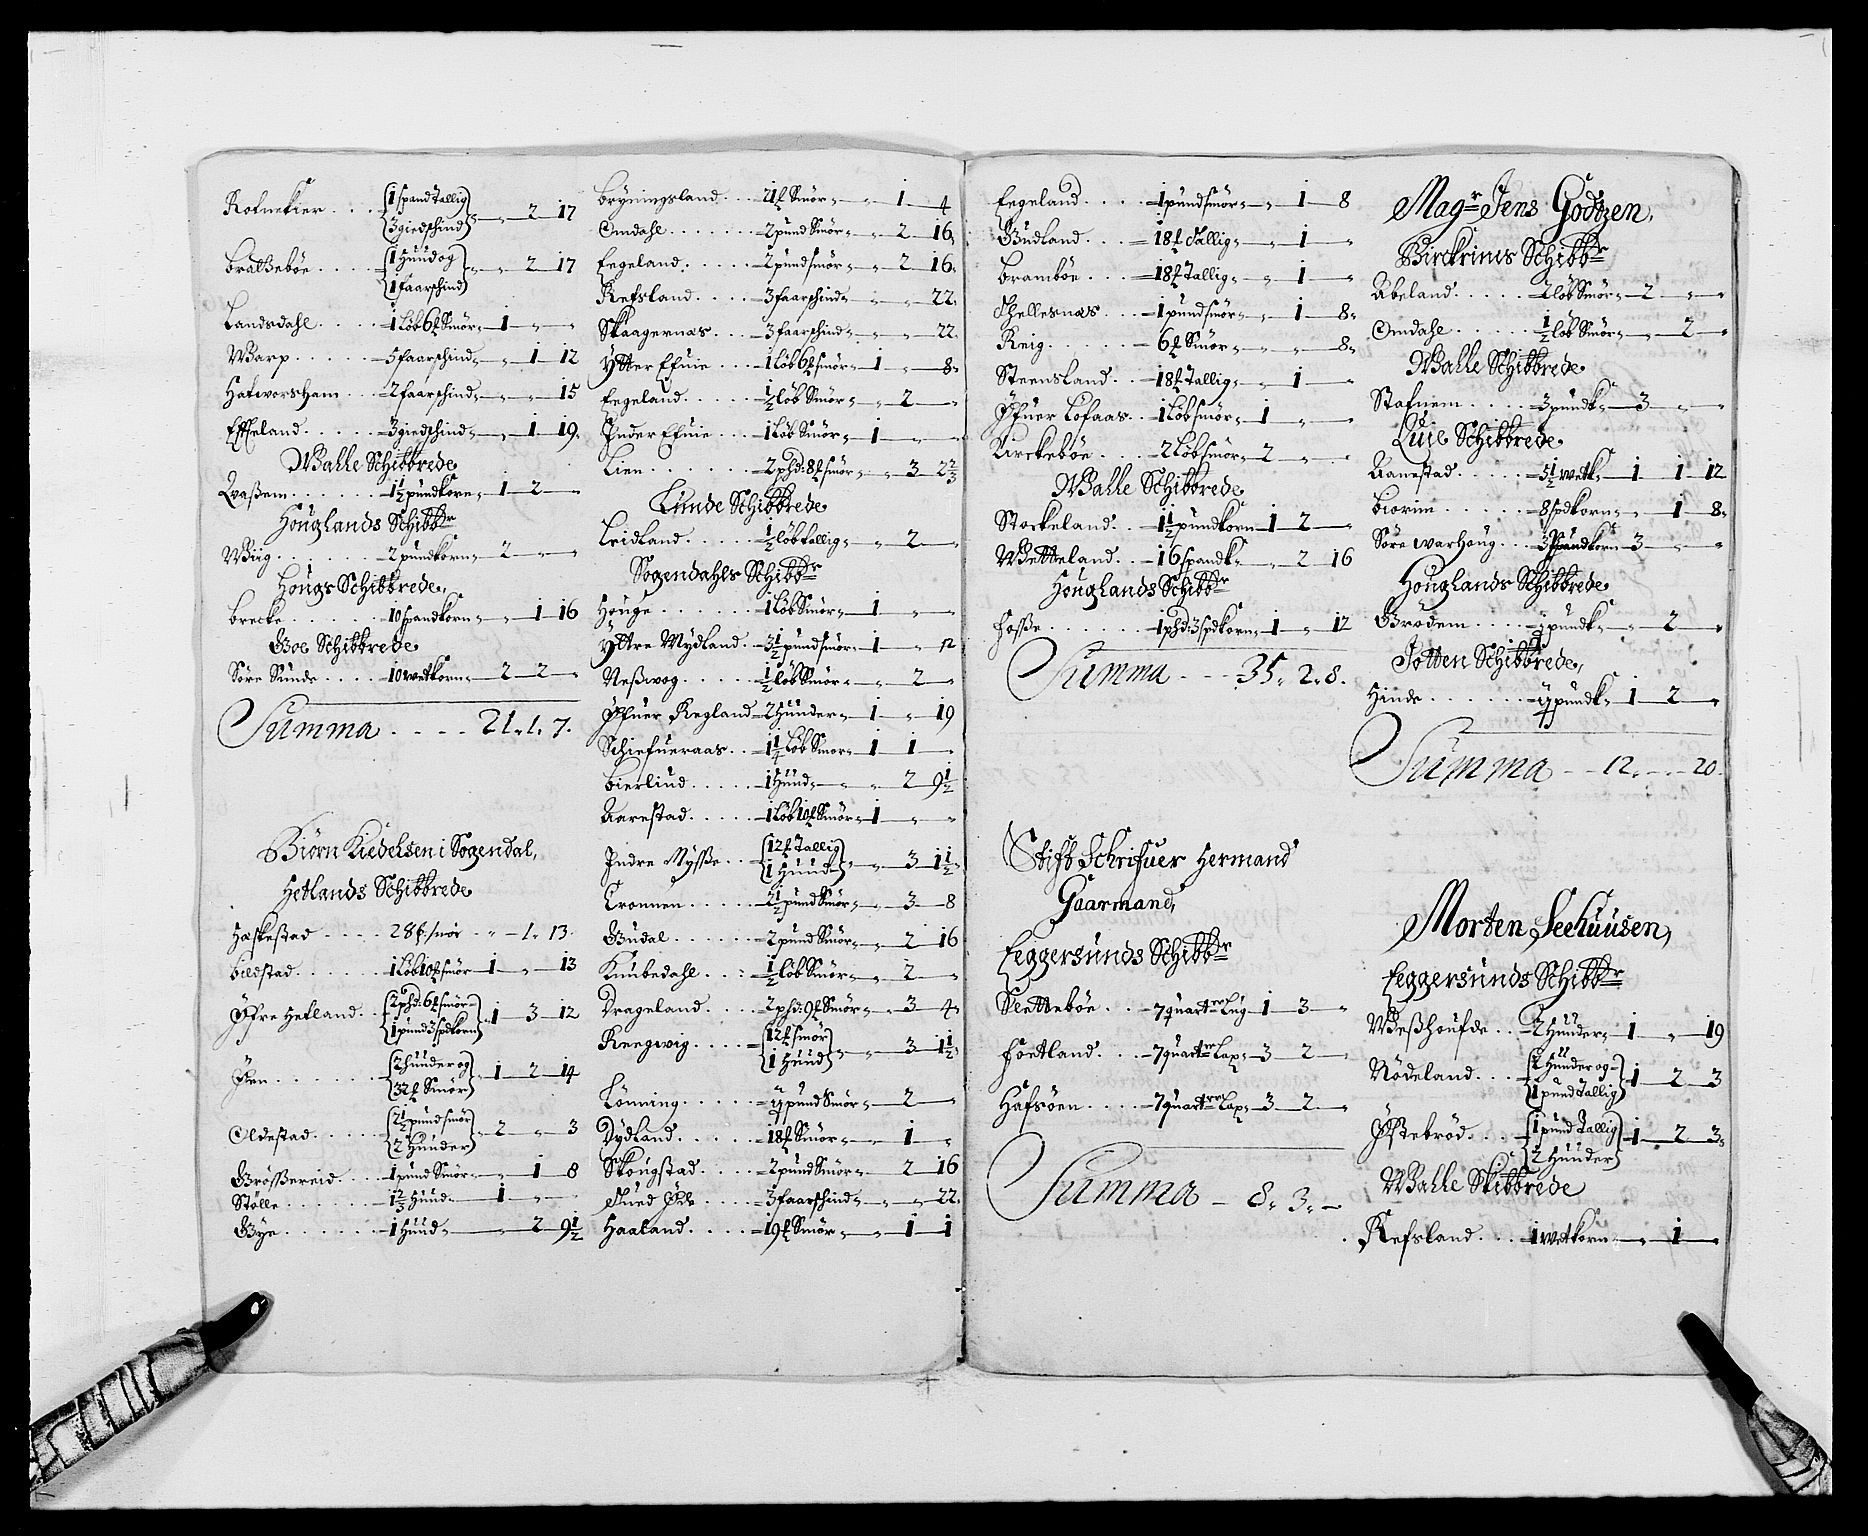 Rofnekier . . . . { 1 spand Tallig
3 giedschind } „ — 2 — 17
Bratzebøe . . . . { 1 Huud og
1 faarschind } „ — 2 — 17
Landsdahl . . . . 1 Løb 6 ℔ Smør — 1 — „ — „
Warp . . . . . 5 faarschind — „ — 1 — 12
Hafworsham . . . 2 faarschind — „ — „ — 15
Effeland . . . . 3 giedschind — „ — 1 — 19.
Walle Schibbrede
Waßem . . . . . 1½ pundkorn — 1 — 2 — „
Høuglands Schibbr
Wiig . . . . . 2 pundkorn — 2 — „ — „
Høugs Schibbrede,
Brecke . . . . . 10 spandkorn — „ — 1 — 16
Goe Schibbrede
Søre Sunde . . . . 10 wetkorn — 2 — 2 — „
Summa . . . . . 21. 1. 7.
Biørn Kiedelsen i Sogendal,
Hetlands Schibbrede
Haskestad . . . . 28 ℔ smør „ — 1. 13.
Bilstad . . . . . 1 Løb 10 ℔ smør — 1 — „ — 13
Øfre Hetland . . { 2 phd: 6 ℔ smør
1 pund 3 spdkorn } 1 — 3 — 12
Øen . . . . . . { 2 Huuder og
32 ℔ Smør } 1 — 2 — 14
Oldestad . . . . { 2½ pund smør
2 Huuder } 2 — „ — 3
Grøßereid . . . . 1 pund Smør — „ — 1 — 8
Stølle . . . . . 1⅔ Huud — 1 — „ — „
Gye . . . . . . 1 Huud — „ — 2 — 9½
Bryningsland . . . 21 ℔ Smør — „ — 1 — 4
Omdahl . . . . . 2 pund Smør — „ — 2 — 16
Eegeland . . . . 2 pund smør — „ — 2 — 16
Refsland . . . . 3 faarschind — „ — „ — 22.
Skaagernæs . . . 3 faarschind — „ — „ — 22.
Ytter Efuie . . . 1 Løb 6 ℔ smør — 1 — „ — 8
Eegeland . . . . ½ løb Smør — „ — 2 — „
Inder Efuie . . . 1 Løb Smør — 1 — „ — „
Lien . . . . . . 2 phd: 8 ℔ smør — „ — 3 — 2⅔
Lunde Schibbrede
Lridland . . . . ½ løb tallig — „ — 2 — „
Sogendahls Schibbr
Høuge . . . . . 1 Løb Smør — 1 — „ — „
Yttre Mydland . . 3½ pund smør — 1 — „ — 12
Neßwog . . . . . ½ løb Smør — „ — 2 — „
Øfuer Regland — 2 Huuder — 1 — „ — 19
Schiefueraas . . 1¼ Løb Smør — 1 — 1 — „
Bierliud . . . . 1 Huud — „ — 2 — 9½
Aarestad . . . . 1 Løb 10 ℔ Smør — 1 — „ — „
Indre Nysße . . { 12 ℔ Tallig
1 Huud } „ — 3 — 1½
Tronnen . . . . 2½ pund Smør — „ — 3 — 8
Gudal . . . . . 2 pund Smør — „ — 2 — 16
Knubedahl . . . ½ løb Smør — „ — 2 — „
Drageland . . . 2 phd: 9 ℔ Smør — „ — 3 — 4
Reegwig . . . . { 12 ℔ smør
1 Huud } „ — 3 — 1½
Lønning . . . . pund Smør — „ — 2 — „
Dydland . . . . 18 ℔ Smør — „ — 1 — „
Skougstad . . . 2 pund Smør — „ — 2 — 16
3 faarschind — „ — „ — 22.
Haaland . . . . 19 ℔ Smør — „ — 1 — 1
Eegeland . . . . 1 pund smør — „ — 1 — 8
Gudland . . . . 18 ℔ Tallig — „ — 1 — „
Brambøe . . . . 18 ℔ Tallig — „ — 1 — „
Thellesnæs . . . 1 pund smør — „ — 1 — 8
Reig . . . . . . 6 ℔ Smør — „ — „ — 8
Steensland . . . 18 ℔ Tallig — „ — 1 — „
Øfuer Lofaas . . 1 Løb smør — 1 — „ — „
Kirckebøe . . . 2 Løb smør — 2 — „ — „
Walle Schibbrede
Stockeland . . . 1½ pundkorn — 1 — 2 — „
Wetteland . . . 16 spandk — „ — 2 — 16
Høuglands Schibbr
Foße . . . . . 1 phd: 3 spdkorn — 1 — „ — 12
Summa . . . 35. 2. 8.
Stift Schrifuer Hermand
Gaarmand,
Eeggersunds Schibbr
Slettebøe . . . 7 quartr Lug 1 — 3 — „
Foetland . . . . 7 quartr Lax — 3 — 2 — „
Hafsøen . . . . 7 quartr Lax — 3 — 2 — „
Summa — 8. 3. —
Magr Jens Godtzen,
Birckrims Schibbr
Abeland . . . . 2 løb Smør — 2 — „ — „
Omdahl . . . . . ½ løb Smør — „ — 2 — „
Walle Schibbrede
Stafnem . . . . 3 pundk — 3 — „ — „
Luie Schibbrede
Aanestad . . . . 5½ wetk — 1 — 1 — 12
Biorne . . . . . 8 spdkorn — „ — 1 — 8
Søre warhoug . . 3 pundkorn — 3 — „ — „
Høuglands Schibbrede
Grødem . . . . . pundk — „ — 2 — „
Jotten Schibbrede,
Hinde . . . . . pundk — 1 — 2 — „
Summa — 12. — 20.
Morten Seehuusen,
Eeggersunds Schibbr
Weßhoufde . . . 2 Huuder — 1 — „ — 19
Rødeland . . . { 2 Huuder og
1 pund Tallig } 1 — 2 — 3
Øystebrød . . . { 1 pund Tallig
2 Huuder } 1 — 2 — 3
Walle Skibbrede
Refsland . . . . 1 wetkorn — „ — 1 — „